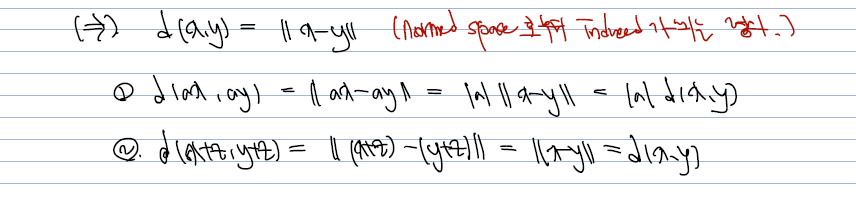 (⇒) d(x,y) = ||x-y|| (normed space로부터 induced
① d(ax, ay) = ||ax-ay|| = |a| ||x-y|| = |a| d(x,y)
②. d(x+z, y+z) = ||(x+z)-(y+z)|| = ||x-y|| = d(x,y)